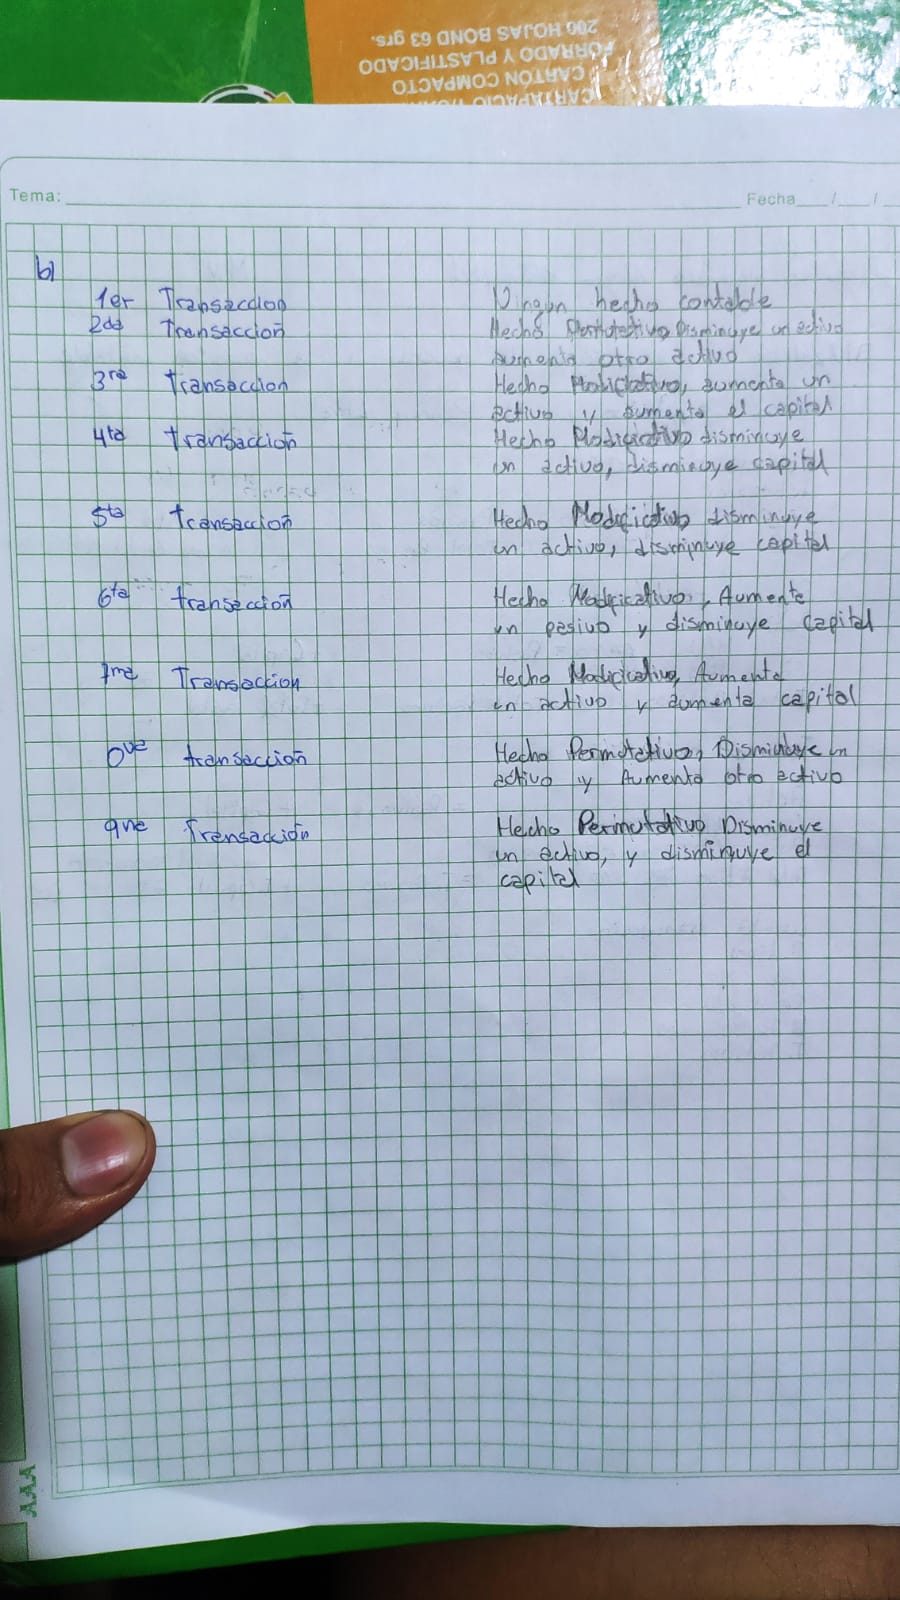 200 HOJAS BOND 63 grs.
FORRADO Y PLASTIFICADO
CARTON COMPACTO
CARTAPACIO
Tema:
Fecha / /
b)
1er Transaccion Ningun hecho contable
2da Transacción Hecho Permutativo Disminuye un activo
Aumenta otro activo
3ra Transaccion Hecho Modificativo, aumenta un
activo y aumenta el capital
4ta transacción Hecho Modificativo disminuye
un activo, disminuye capital
5ta transacción Hecho Modificativo disminuye
un activo, disminuye capital
6ta transacción Hecho Modificativo, Aumenta
un pasivo y disminuye capital
7ma Transaccion Hecho Modificativo, Aumenta
un activo y aumenta capital
transacción Hecho Permutativo, Disminuye un
activo y Aumenta otro activo
9na Transacción Hecho Permutativo Disminuye
un activo, y disminuye el
capital
AAA